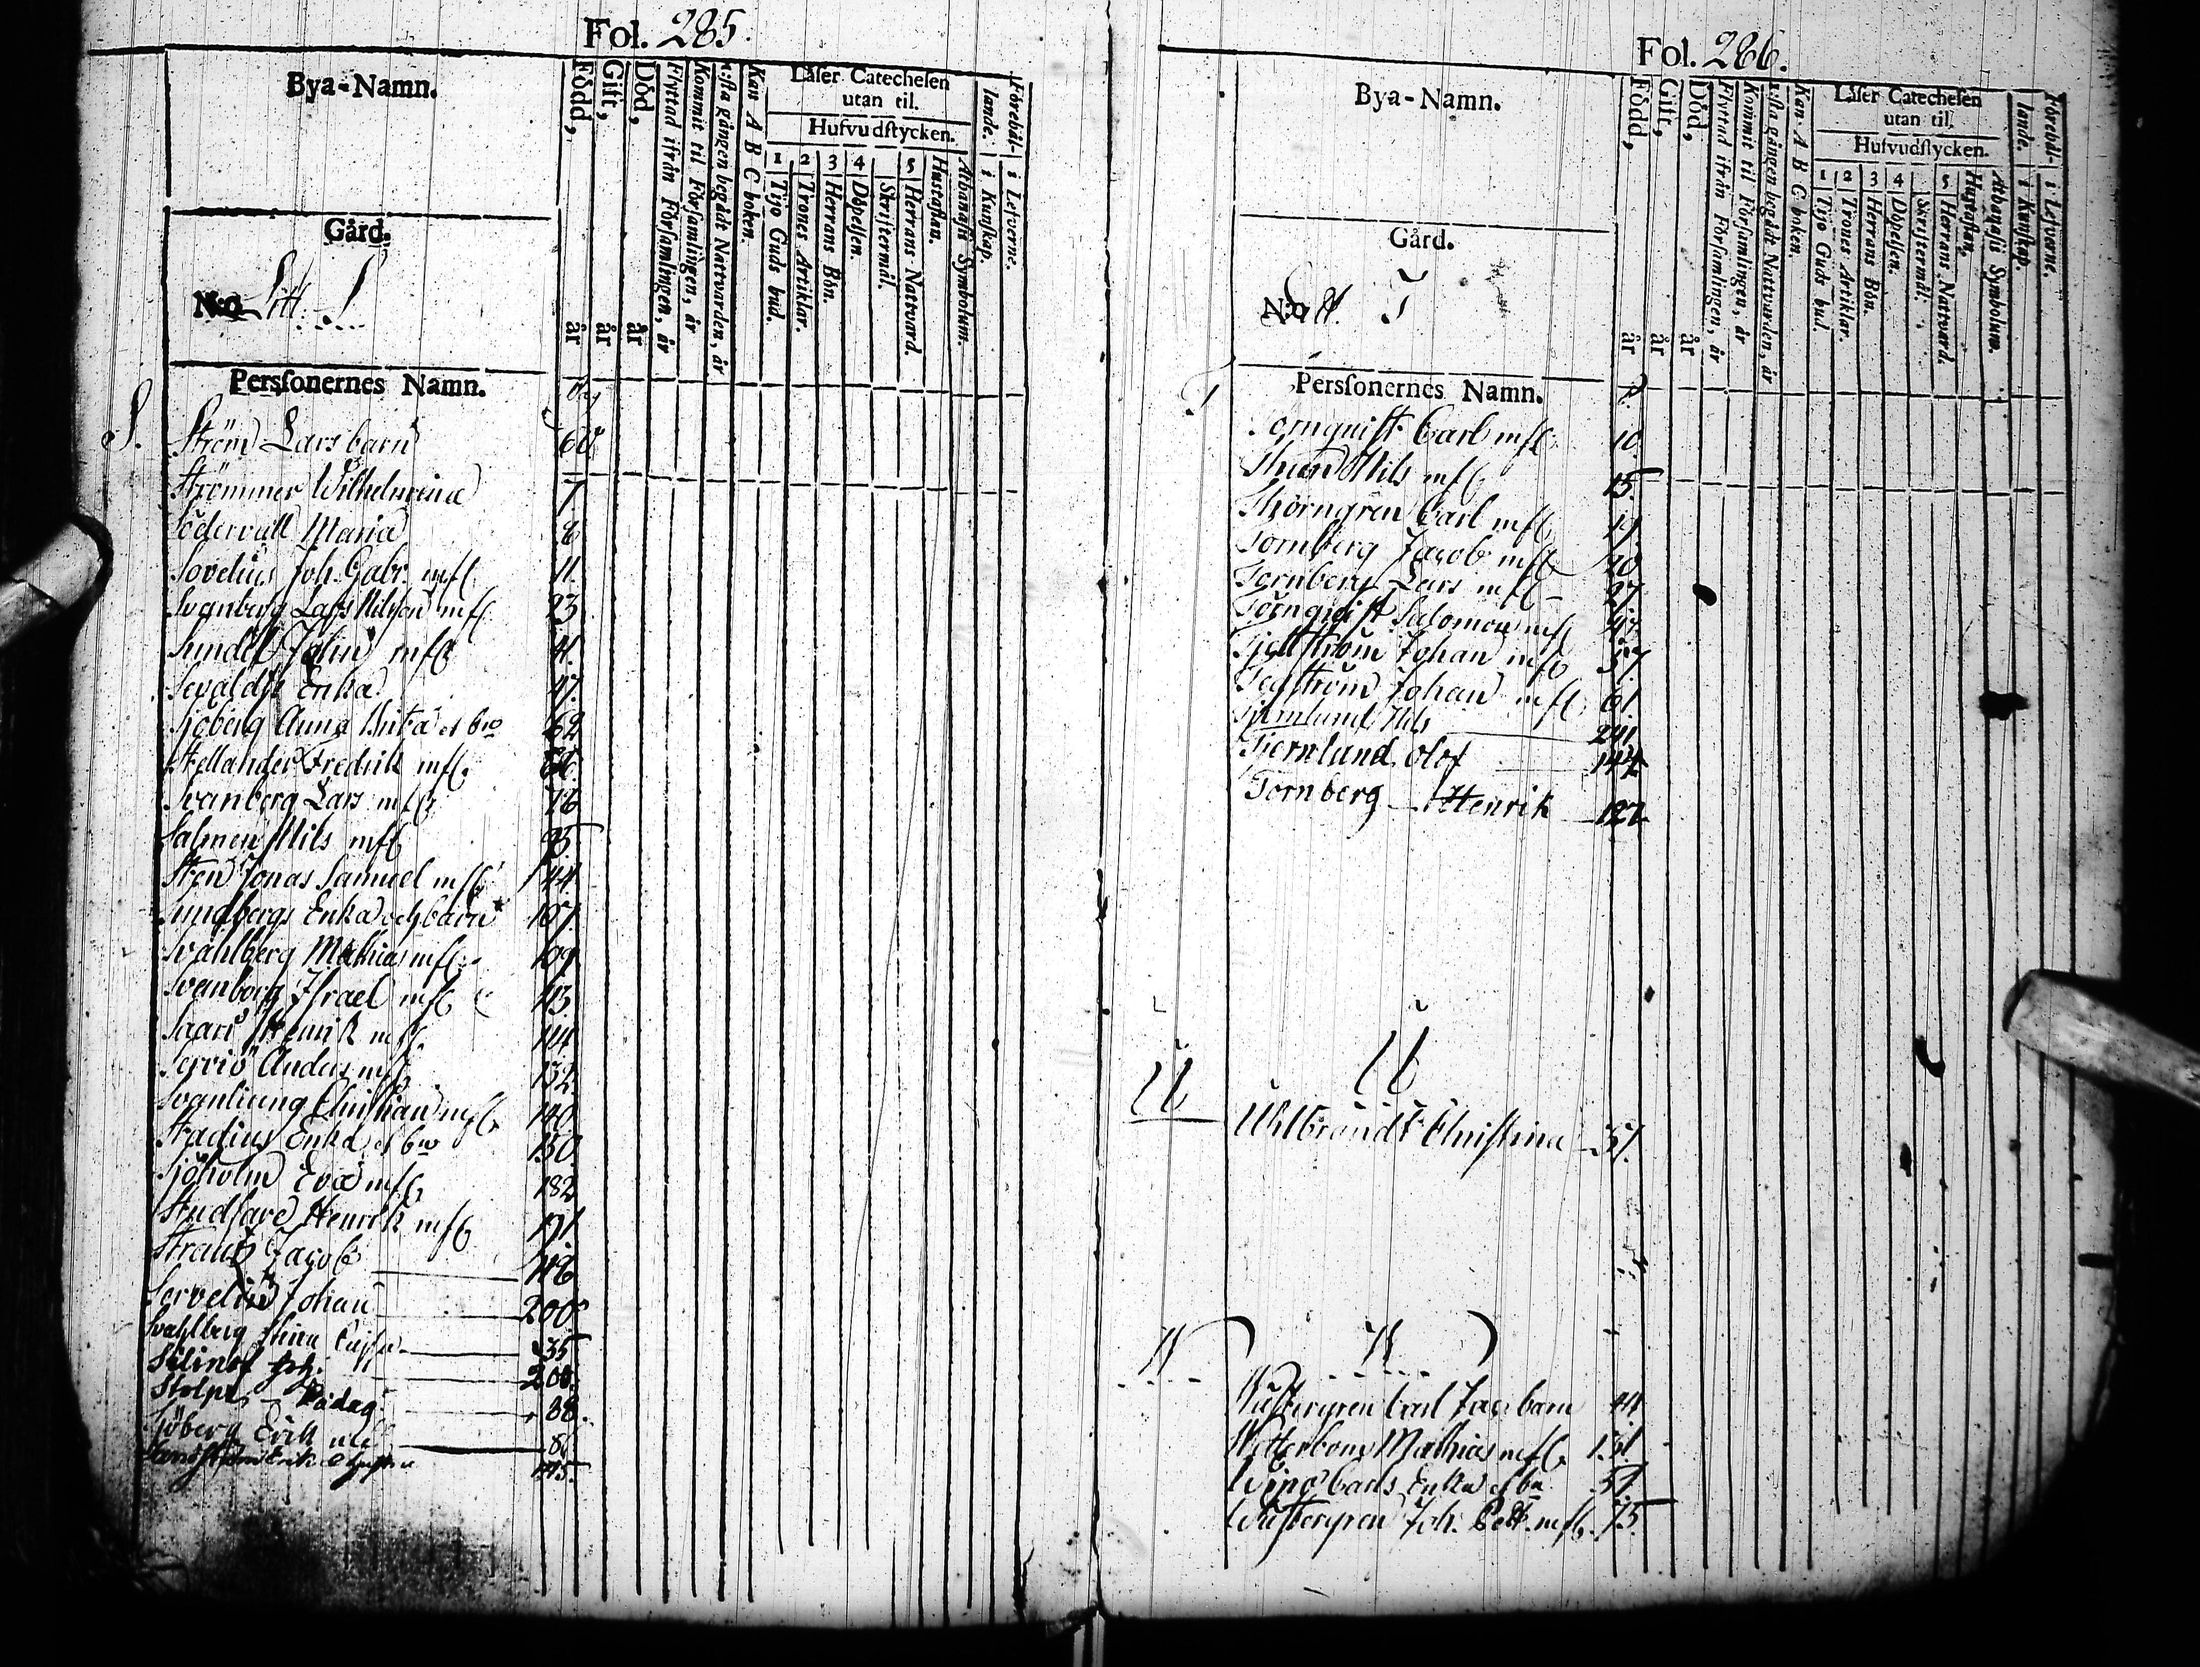 Fol. 285.
Bya-Namn.
Född, år
Gift, år
Död, år
Flyttad ifrån Församlingen, år
Kommit til Församlingen, år
1:sta gången begådt Nattvarden, år
Kan A B C boken.
Läser Catechesen utan til.
Hufvudstycken.
1 Tijo Guds bud.
2 Trones Artiklar.
3 Herrans Bön.
4 Döpelsen.
Skriftermål.
5 Herrans Nattvard.
Hustaflan.
Athanasii Symbolum.
Förehållande.
i Kunskap.
i Lefverne.
Gård.
N:o Litt. S
Personernes Namn.
S.
Ström Lars barn 68
Strömmer Wilhelmina 7
Södervall Maria 8
Sovelius Joh. Gabr. mfl 11.
Svanberg Lars Nilsson mfl 23
Sundel Johan mfl 41.
Sevaldts Enka 47.
Sjöberg Anna Brita et bro 62
Stellander Fredrik mfl
Svanberg Lars mfl 78
Salmen Nils mfl 95
Sten Jonas Samuel mfl 144
Sundbergs Enka och barn 107
Svahlberg Mathias mfl 109
Svanborg Israel mfl 113.
Saari Henrik mfl. 114
Servio Anders mfl 132
Svanliung Christian mfl 140
Stadius Enka et bro 150
Sjöholm Eva mfl 182
Studfare Henrik mfl 191
Straus Jacob
Servelius Johan 200
Svahlberg Stina Cajsa 35
Selinof Joh. 200
Stolpe Pädag 88.
Sjöberg Erik mfl 8
Erik 145.
Fol. 286.
Bya-Namn.
Född, år
Gift, år
Död, år
Flyttad ifrån Församlingen, år
Kommit til Församlingen, år
1:sta gången begådt Nattvarden, år
Kan A B C boken.
Läser Catechesen utan til.
Hufvudstycken.
1 Tijo Guds bud
2 Trones Artiklar.
3 Herrans Bön.
4 Döpelsen.
Skriftermål.
5 Herrans Nattvard.
Hustaflan.
Athanasii Symbolum.
Förehållande.
i Kunskap.
i Lefverne.
Gård.
N:o Litt. T
Personernes Namn.
T
Tornquist Carl mfl 10
Thun Nils mfl 15
Thörngren Carl mfl 19
Tornberg Jacob mfl 20
Tornberg Lars mfl 27
Törnqvist Salomon mfl 47
Tjellström Johan mfl 57
Tegström Johan mfl 61
Tjernlund Nils 241
Tjernlund Olof 144
Tornberg Henrik 127
U U
Uhlbrandt Christina 57.
W W
Wustergren Carl Jac. barn 44
Wetterbom Mathias mfl. 131
Wijno Carls Enka et bn 51
Wustergren Joh. Pett. mfl. 75